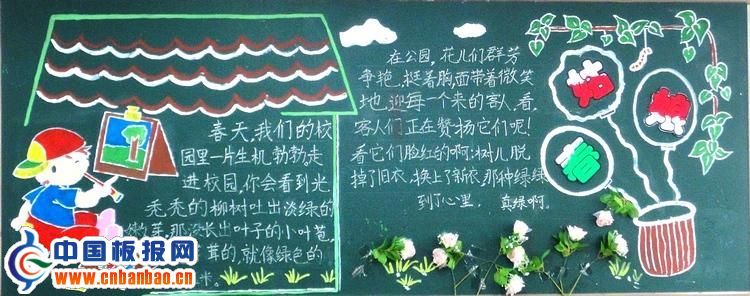 春天，我们的校
园里一片生机勃勃走
进校园，你会看到光
秃秃的柳树吐出淡绿的
嫩芽，那没长出叶子的小叶苞，
茸的，就像绿色的
米。
在公园，花儿们群芳
争艳，挺着胸，面带着微笑
地迎每一个来的客人，看，
客人们正在赞扬它们呢！
看它们脸红的啊；树儿脱
掉了旧衣，换上了新衣，那种绿绿
到了心里。 真绿啊。
春
中国板报网
www.cnbanbao.cn